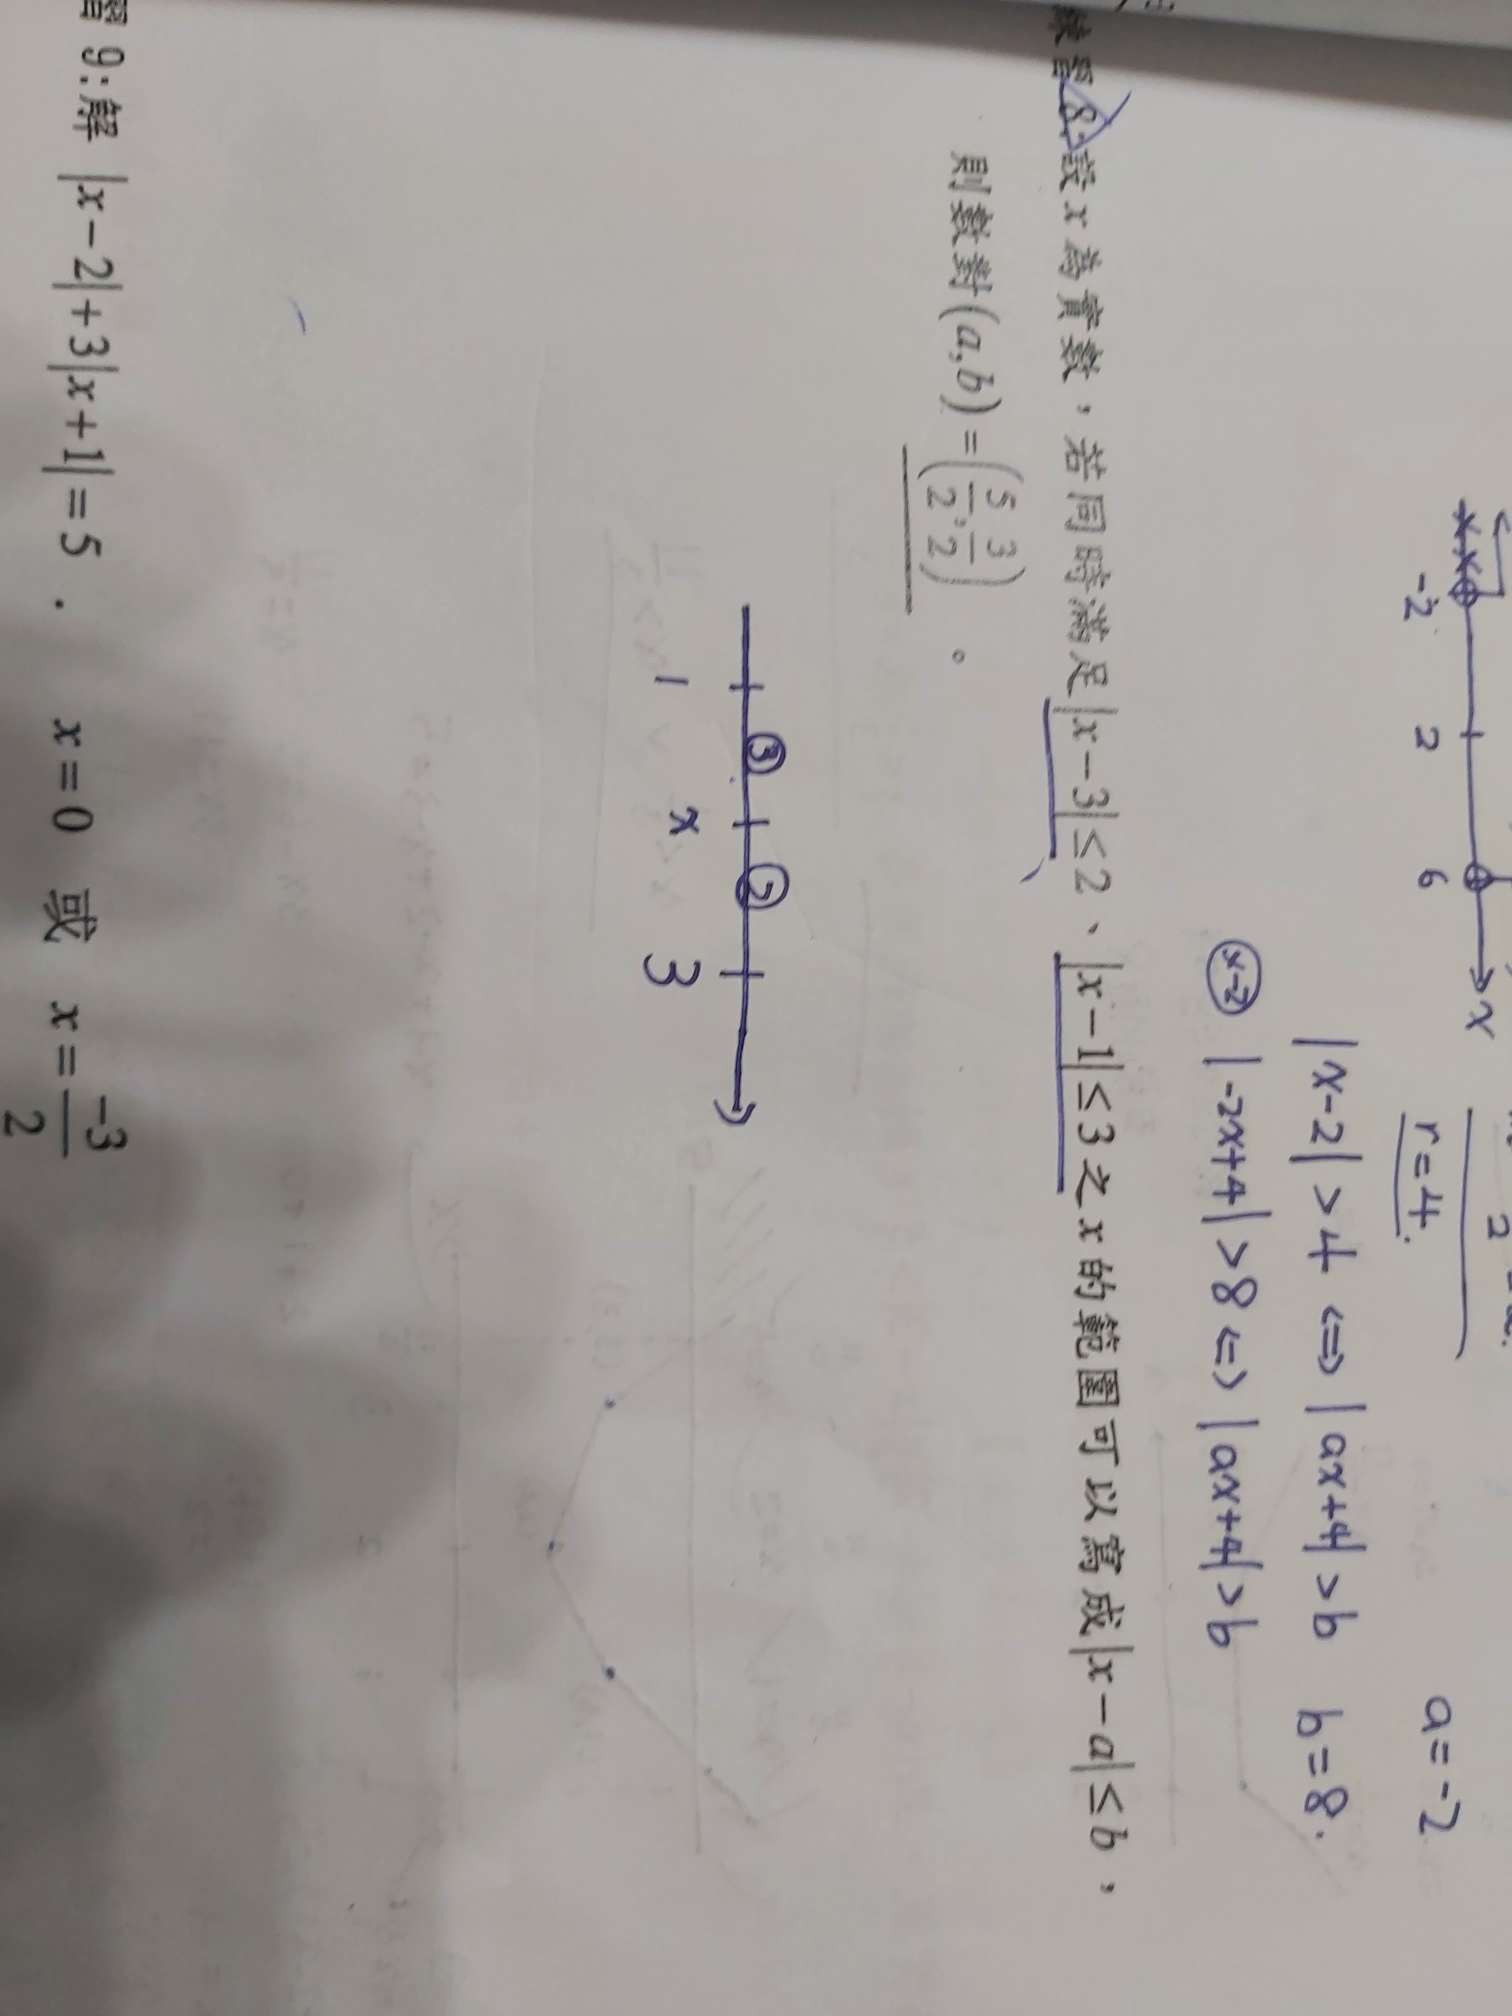 -2 2 6 x
r=4.
a=-2
|x-2|>4 ⇔ |ax+4|>b b=8.
x-2 |-2x+4|>8 ⇔ |ax+4|>b
8: 設 x 為實數，若同時滿足|x-3|≤2、|x-1|≤3之 x 的範圍可以寫成|x-a|≤b，
則數對(a,b)=(5/2, 3/2)。
③ ②
1 x 3
9:解 |x-2|+3|x+1|=5. x=0 或 x=-3/2